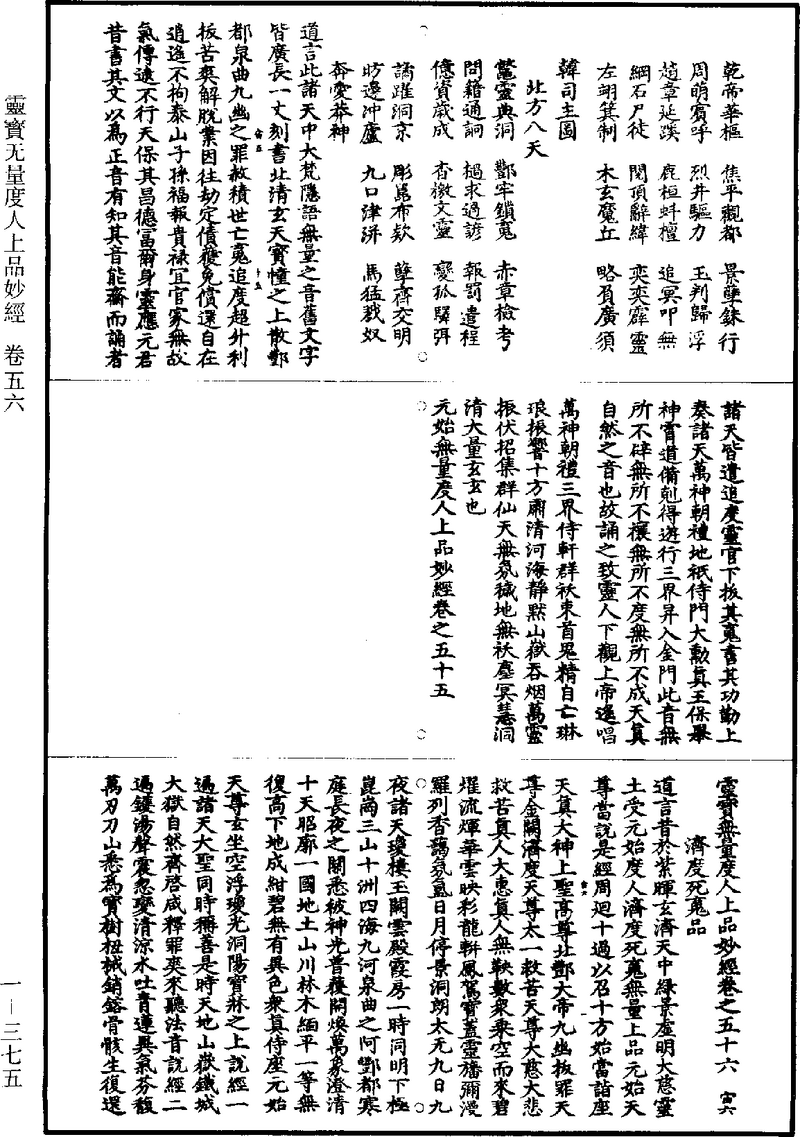 乾帝華樞　焦平觀都　景孽銖行
周萌賓呼　烈井驅力　玉判歸浮
趙韋延蹊　鹿桓蚪檀　追冥叩無
綱石尸徒　閱頂辭緯　奕奕霹靈
左翊箕制　木玄魔丘　略負廣須
韓司主圖
北方八天
鼈靈典洞　酆牢鎖鬼　赤章檢考
問籍通詞　樋求過諺　報罰遣程
億資歲成　杳檄文靈　變孤驛弭
譎躍洞京　彫嵬布欸　孽齊交明
昉邊冲廬　九口津洴　馬猛戮奴
奔愛莽神
道言此諸天中大梵隱語無量之音舊文字
皆廣長一丈刻書北清玄天寶幢之上散酆
都泉曲九幽之罪赦積世亡魂追度超升利
拔苦爽解脫業因往劫定債癈免償還自在
逍遙不拘泰山子孫福報貴祿宜官家無故
氣傳逮不行天保其昌德富爾身靈應元君
昔書其文以爲正音有知其音能齋而誦者
諸天皆遣追度靈官下拔其魂書其功勤上
奏諸天萬神朝禮地祇侍門大勳眞王保舉
神霄道備剋得遊行三界昇入金門此音無
所不辟無所不禳無所不度無所不成天眞
自然之音也故誦之致靈人下觀上帝遙唱
萬神朝禮三界侍軒群祅束首鬼精自亡琳
琅振響十方肅清河海靜默山嶽吞烟萬靈
振伏招集群仙天無氛穢地無祅塵冥慧洞
清大量玄玄也
元始無量度人上品妙經卷之五十五
靈寶無量度人上品妙經卷之五十六　宙六
濟度死魂品
道言昔於紫暉玄濟天中綠景虛明大慈靈
土受元始度人濟度死魂無量上品元始天
尊當說是經周迴十過以召十方始當詣座
天眞大神上聖高尊北酆大帝九幽拔罪天
尊金闕濟度天尊太一救苦天尊大慈大悲
救苦眞人大惠眞人無鞅數衆乘空而來碧
燿流煇華雲映彩龍軿鳳駕寶蓋靈旛彌漫
羅列香藹氛氳日月停景洞朗太无九日九
夜諸天瓊樓玉闕雲殿霞房一時同明下極
崑崗三山十洲四海九河泉曲之阿酆都寒
庭長夜之關悉被神光普復開煥萬象澄清
十天昭廓一國地土山川林木緬平一等無
復高下地成紺碧無有異色衆眞侍座元始
天尊玄坐空浮瓊光洞陽寶牀之上說經一
遍諸天大聖同時稱善是時天地山嶽鐵城
大獄自然齋啓咸釋罪爽來聽法音說經二
遍鑊湯聲震忽變清涼水吐青蓮異氣芬馥
萬刃刀山悉爲寶樹杻械銷鎔骨骸生復還
靈寶无量度人上品妙經　卷五六
一－三七五